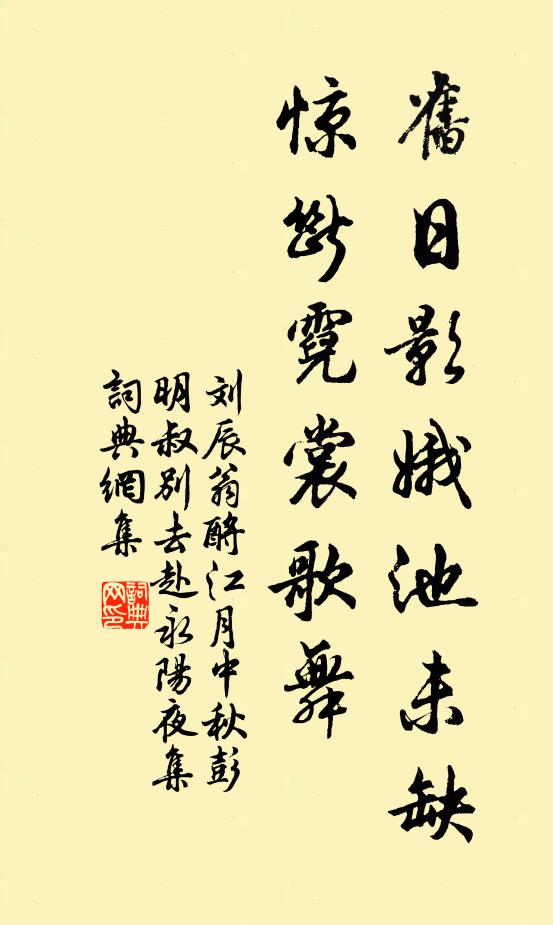 舊日影娥池未缺
惊斷霓裳歌舞
刘辰翁酹江月中秋彭
明叔别去赴永陽夜集
詞典網集
詞典
网印